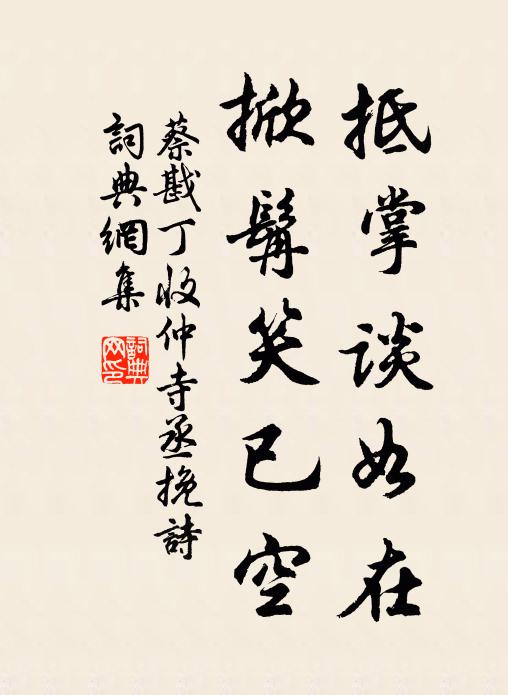 抵掌談如在
掀髯笑已空
蔡戡丁收仲寺丞挽詩
詞典網集
詞典網印